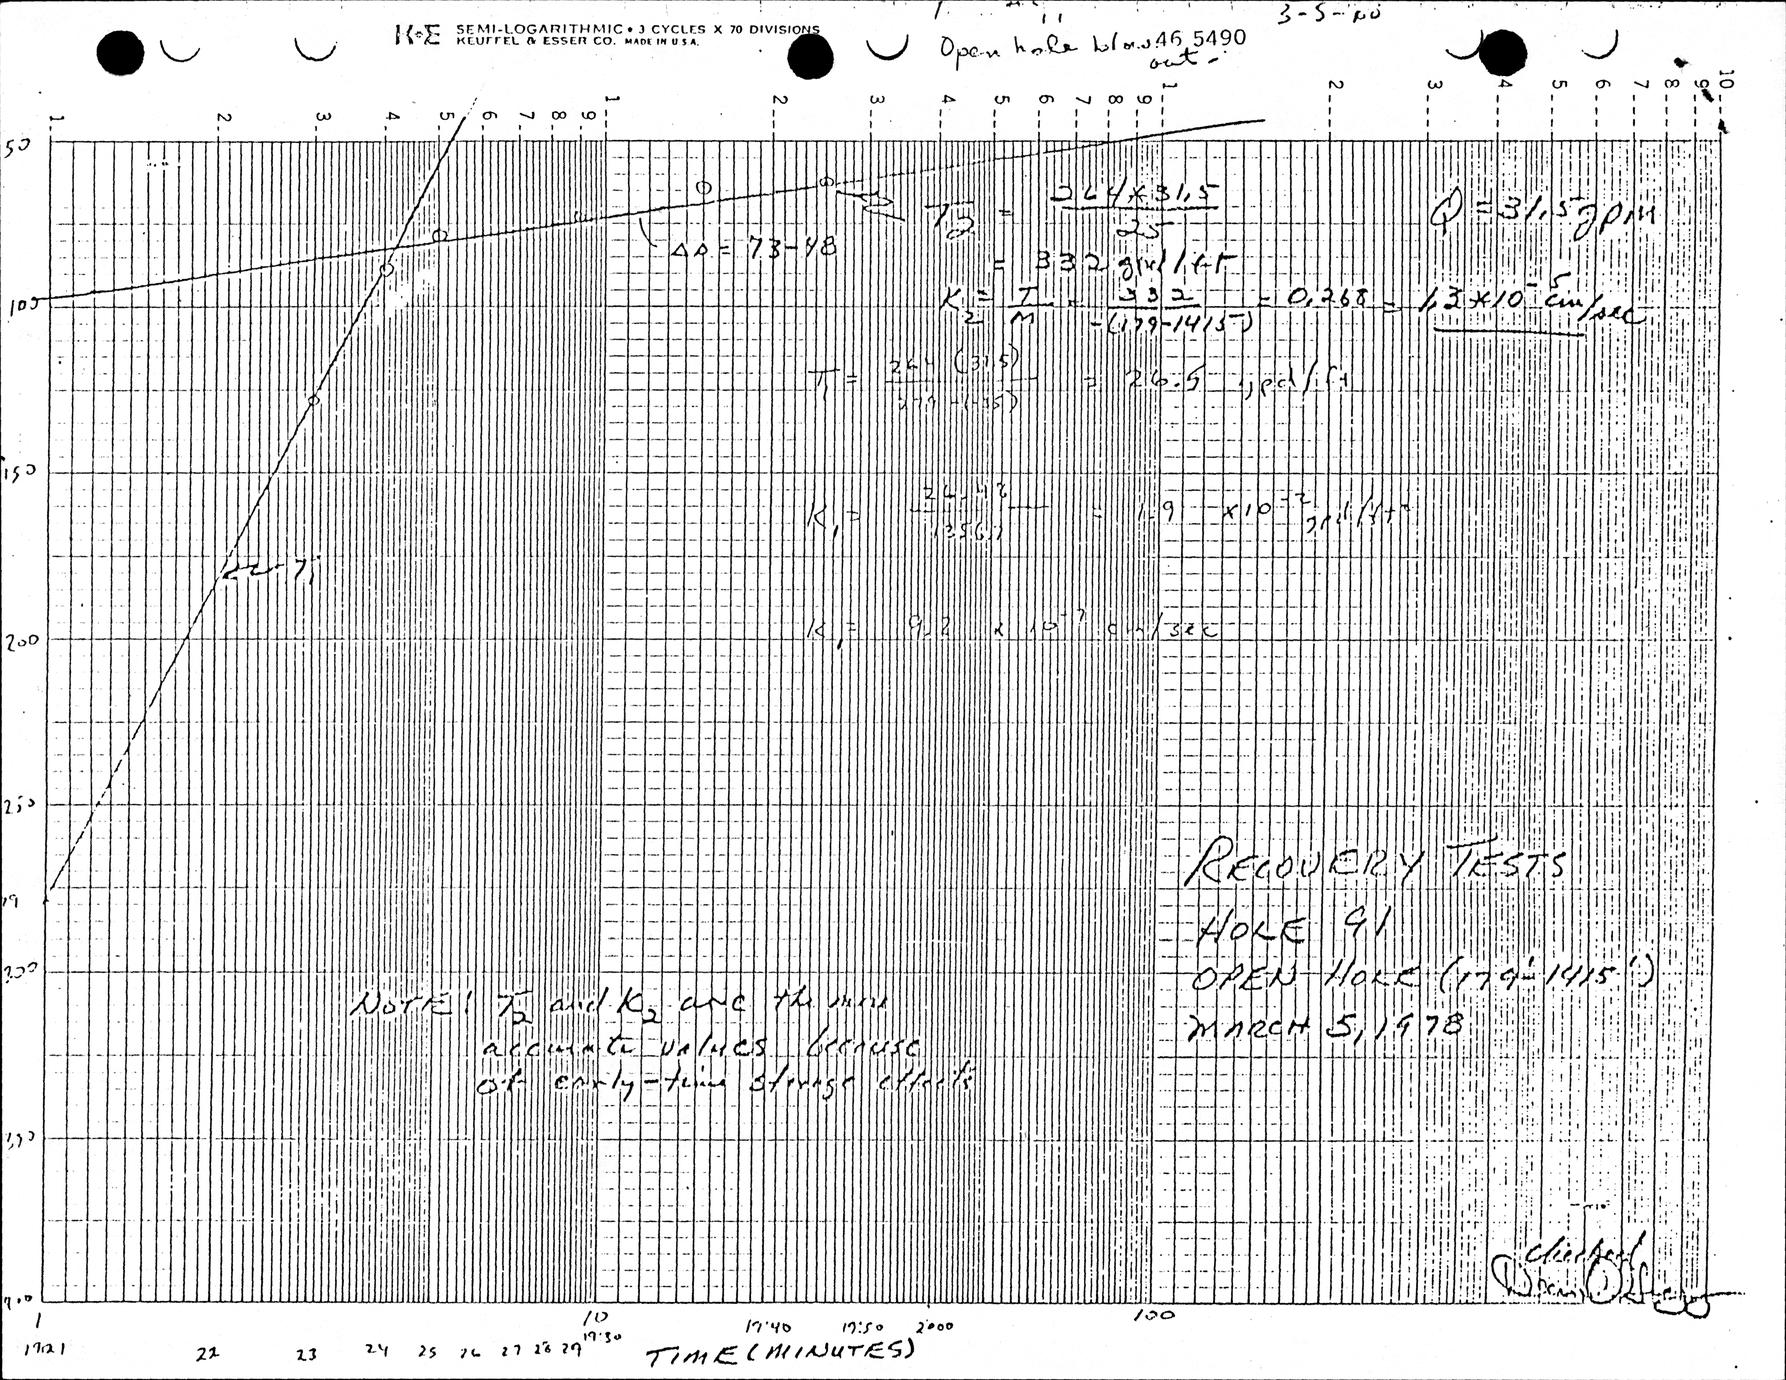 3-5-
K+E SEMI-LOGARITHMIC • 3 CYCLES X 70 DIVISIONS
KEUFFEL & ESSER CO. MADE IN U.S.A.
46 5490
Open hole
out
1 2 3 4 5 6 7 8 9 1 2 3 4 5 6 7 8 9 1 2 3 4 5 6 7 8 9 10
50
T2 = 264 x 31.5 / 25
Q = 31.5 gpm
Δs = 73-48
= 332 gpd/ft
100
K2 = T/M = 332 / -(179-1415) = 0.268 = 1.3 x 10-5 cm/sec
T1 = 264 (31.5) = 26.5 gpd/ft
150
K1 = = 1.9 x10-2 gpd/ft2
200
K1 = 9.2 x 10-7 cm/sec
250
RECOVERY TESTS
HOLE 91
OPEN HOLE (179'-1415')
MARCH 5, 1978
300
NOTE! T2 and K2 are the more
accurate values because
of early-time storage effects
350
checked
400
1 10 100
19:21 22 23 24 25 26 27 28 29 19:30 19:40 19:50 2000
TIME (MINUTES)